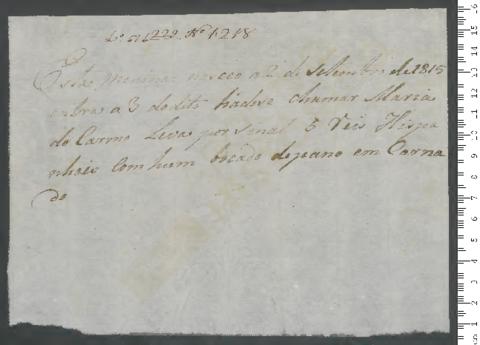 Lº a f 222 Nº 1218
Esta menina nasceo a 2 de Setembro de 1815
entra a 3 do dito hadese chamar Maria
do Carmo Leva por senal 5 reis Hespa
nhois com hum bocado de pano em Carna
do